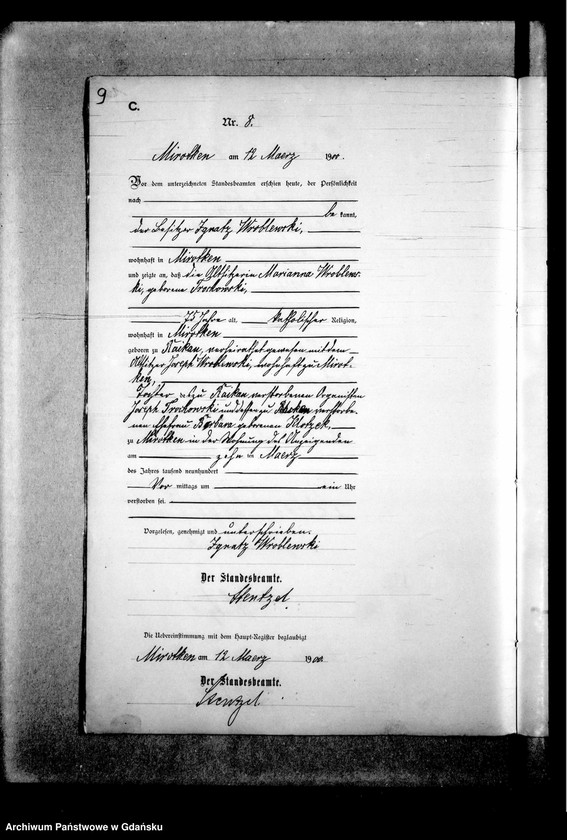 9
C.
Nr. 8.
Mirotken am 12 Maerz 1900.
Vor dem unterzeichneten Standesbeamten erschien heute, der Persönlichkeit
nach
be kannt,
der Besitzer Ignatz Wroblewski,
wohnhaft in Mirotken
und zeigte an, daß die Altsitzerin Marianna Wroblews-
ki, geborene Trochowski,
75 Jahre alt, katholischer Religion,
wohnhaft in Mirotken
geboren zu Kackau, verheirathet gewesen mit dem
Altsitzer Joseph Wroblewski, wohnhaft zu Mirot-
ken,
Tochter des zu Kackau verstorbenen Organisten
Joseph Trochowski und dessen zu verstorbe-
nen Ehefrau Barbara geborenen Klotzek,
zu Mirotken in der Wohnung des Anzeigenden
am zehn ten Maerz
des Jahres tausend neunhundert
Vor mittags um ein Uhr
verstorben sei.
Vorgelesen, genehmigt und unterschrieben.
Ignatz Wroblewski
Der Standesbeamte.
Stentzel
Die Uebereinstimmung mit dem Haupt-Register beglaubigt
Mirotken am 12 Maerz 1900
Der Standesbeamte.
Stentzel
Archiwum Państwowe w Gdańsku